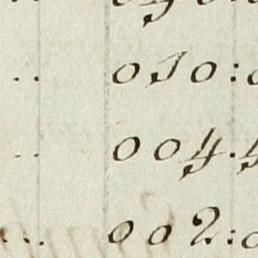 .. 010:
.. 004.4
... 002:0